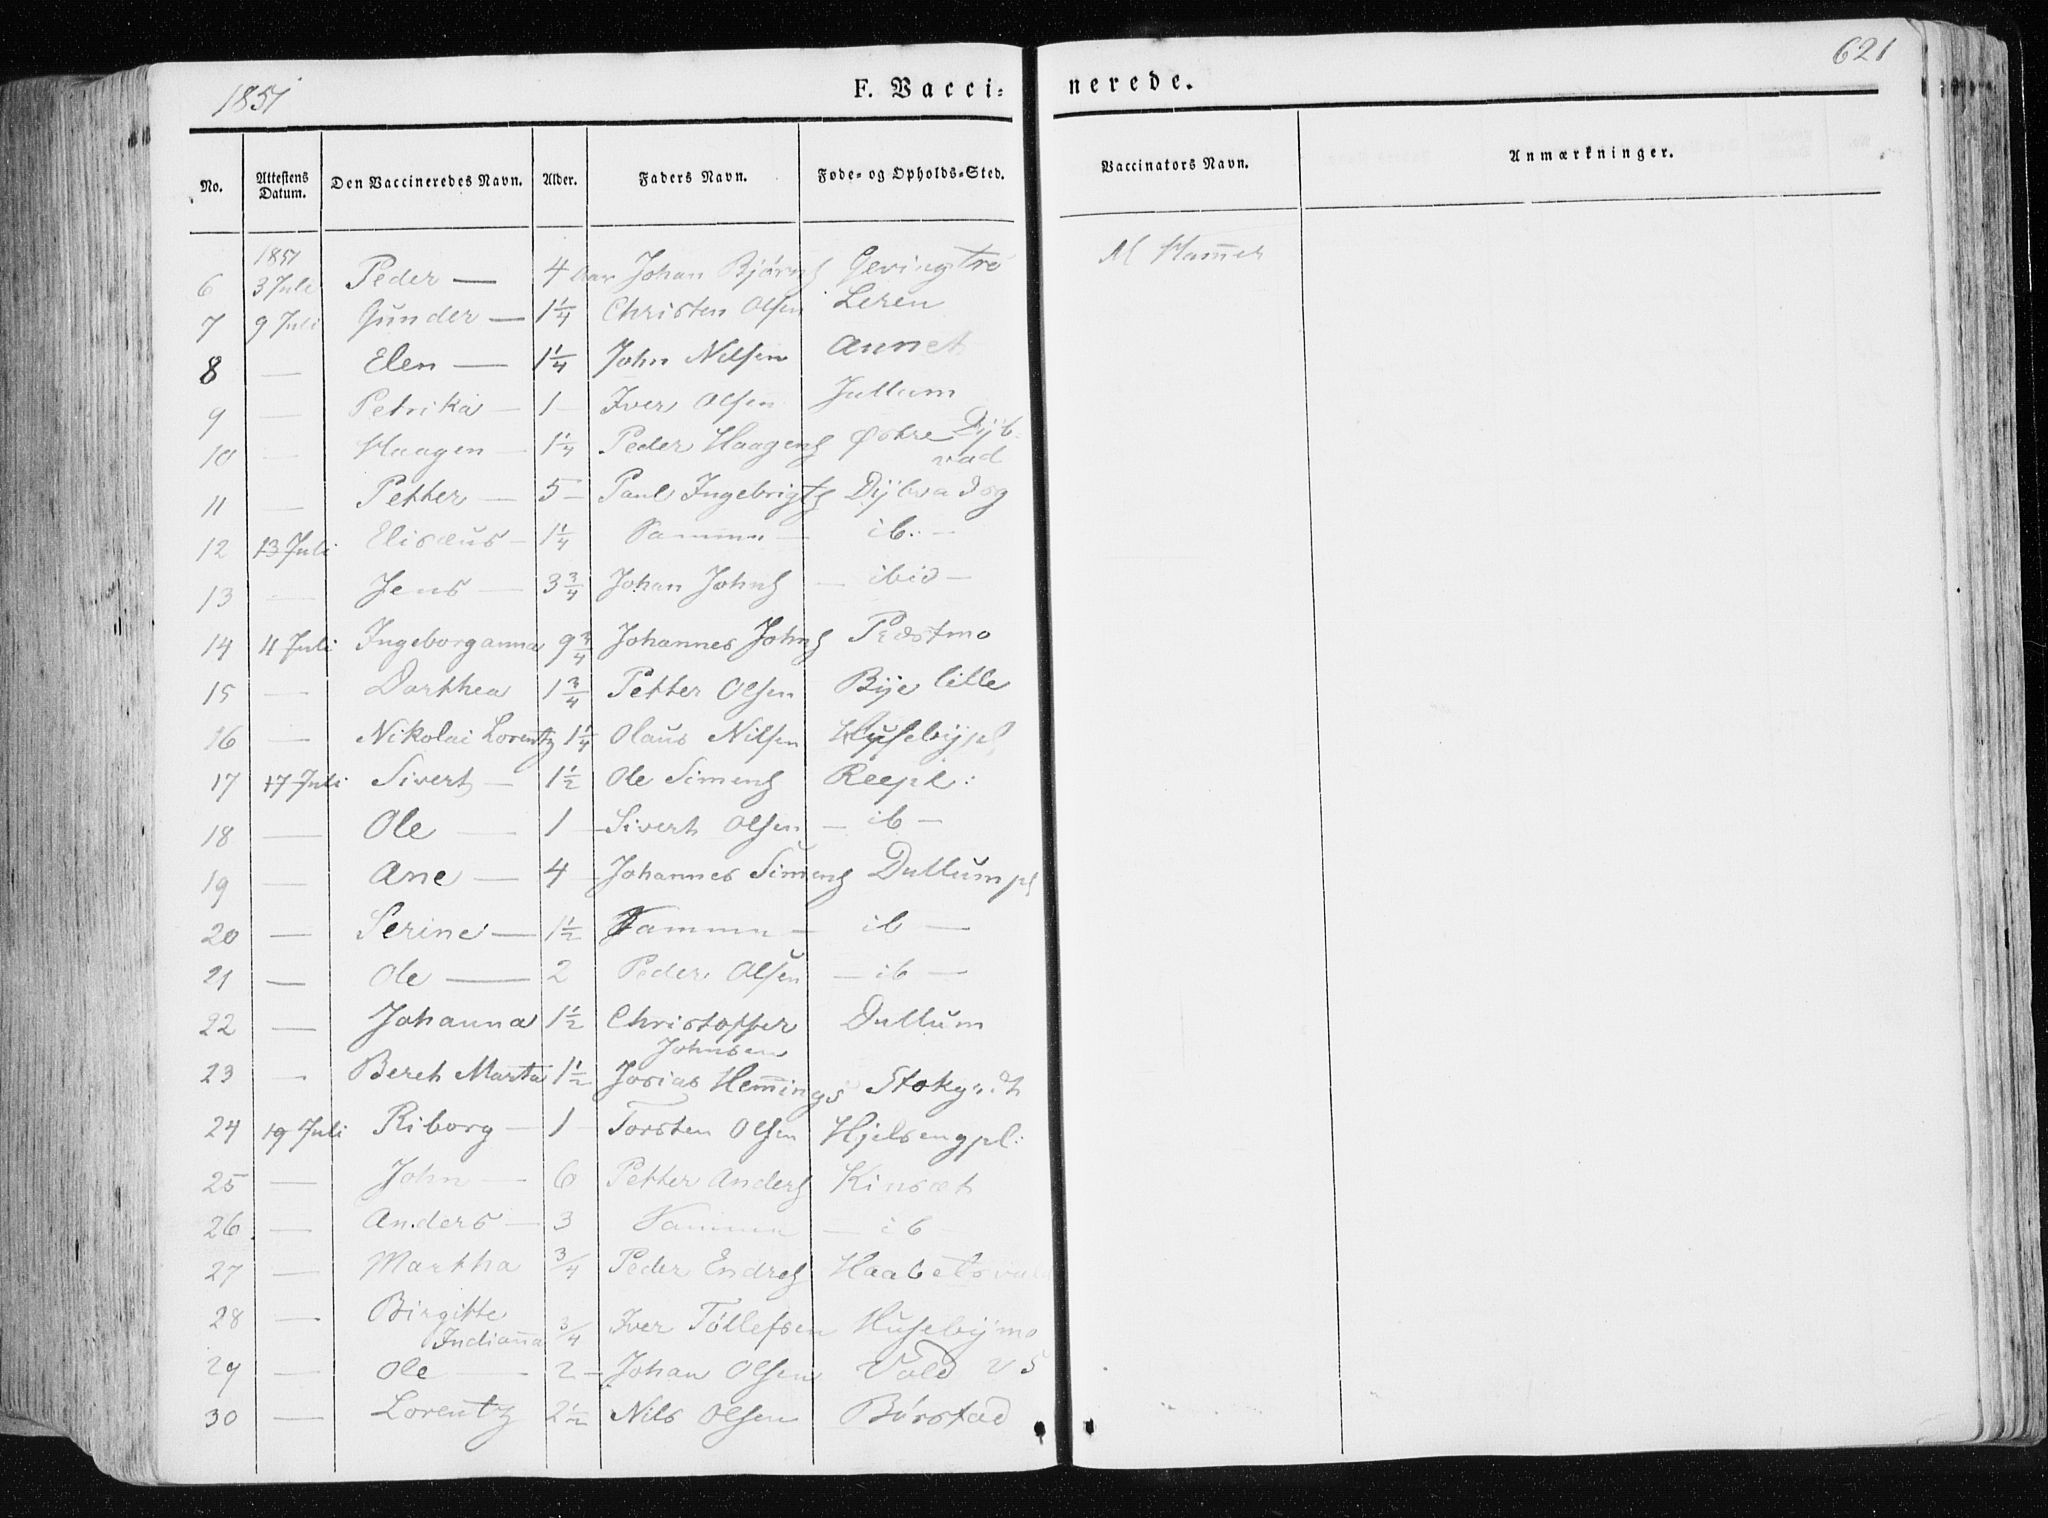 1851
F. Vacci=
nerede.
621
No.
Attestens Datum.
Den Vaccineredes Navn.
Alder.
Faders Navn.
Føde- og Opholds-Sted.
Vaccinators Navn.
Anmærkninger.
1851
6 3 Juli Peder — 4 Aar Johan Bjørns Gevingtrø M Ham̄er
7 9 Juli Gunder — 1 1/4 Christen Olsen Leren
8 — Elen — 1 1/4 John Nilsen Aunet
9 — Petrika — 1 — Iver Olsen Jullum
10 — Haagen — 1 1/4 Peder Haagens Østre Dyb
vad
11 — Petter — 5 — Paul Ingebrigts Dybvadog
12 13 Juli Elisæus — 1 1/4 Samme — ib. —
13 — Jens — 3 3/4 Johan Johns — ibid —
14 11 Juli Ingeborganna 9 3/4 Johannes Johns Præstmo
15 — Dorthea 1 3/4 Petter Olsen Bye lille
16 — Nikolai Lorentz 1 1/4 Olaus Nilsen Husebypl
17 17 Juli Sivert — 1 1/2 Ole Simens Reepl:
18 — Ole — 1 — Sivert Olsen — ib —
19 — Ane — 4 — Johannes Simens Dullumpl
20 — Serine — 1 1/2 Samme — ib —
21 — Ole — 2 Peder Olsen — ib —
22 — Johanna 1 1/2 Christoffer Dullum
Johnsen
23 — Bereth Marta 1 1/2 Josias Hem̄ings
24 19 Juli Riborg — 1 — Torsten Olsen Hjelsengpl:
25 — John — 6 Petter Anders Kinsæt
26 — Anders — 3 Samme — ib —
27 — Martha 3/4 Peder Endres
28 — Birgitte
Indian̄a 3/4 Iver Tøllefsen Husebymo
29 — Ole — 2 — Johan Olsen Vold
30 — Lorentz 2 1/2 Nils Olsen Børstad